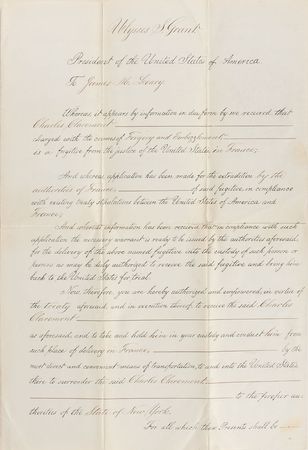 Ulysses S. Grant
President of the United States of America
To James M. Geary
Whereas it appears by information in due form by me received that
Charles Claremont
charged with the crimes of Forgery and Embezzlement
is a fugitive from the justice of the United States in France;
And whereas application has been made for the extradition by the
authorities of France, of said fugitive, in compliance
with existing treaty stipulations between the United States of America and
France;
And whereas information has been received that in compliance with such
application the necessary warrant is ready to be issued by the authorities aforesaid
for the delivery of the above named fugitive into the custody of such person or
persons as may be duly authorized to receive the said fugitive and bring him
back to the United States for trial.
Now, therefore, you are hereby authorized and empowered, in virtue of
the treaty aforesaid, and in execution thereof, to receive the said Charles
Claremont
as aforesaid, and to take and hold him in your custody and conduct him from
such place of delivery in France, by the
most direct and convenient means of transportation, to and into the United States
there to surrender the said Charles Claremont
to the proper au-
thorities of the State of New York.
For all which these Presents shall be